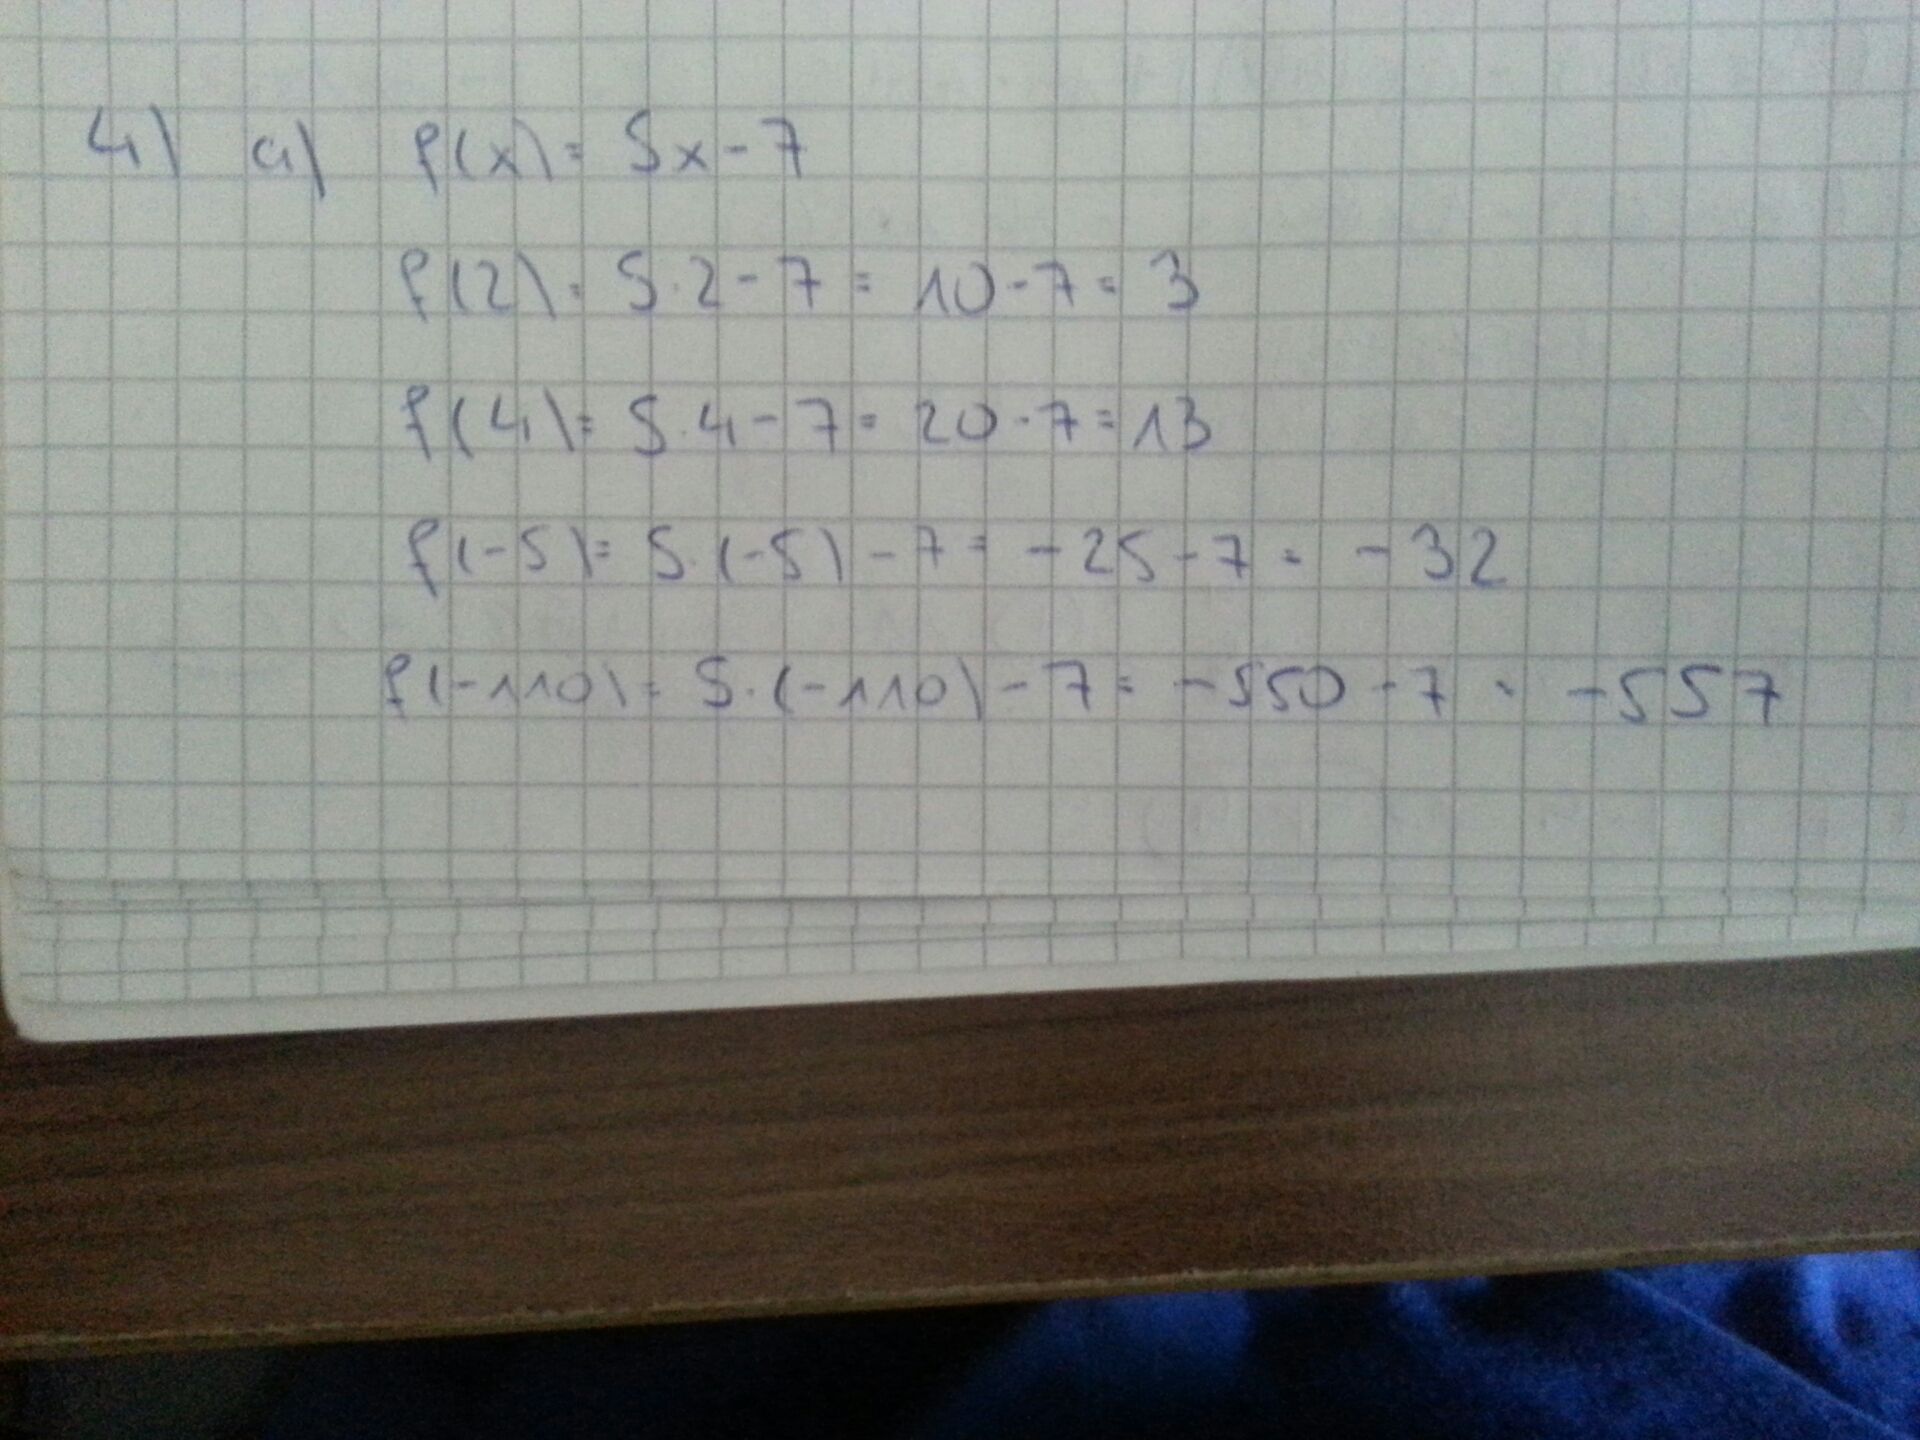 4) a) f(x) = 5x - 7
f(2) = 5·2 - 7 = 10 - 7 = 3
f(4) = 5·4 - 7 = 20 - 7 = 13
f(-5) = 5·(-5) - 7 = -25 - 7 = -32
f(-110) = 5·(-110) - 7 = -550 - 7 = -557